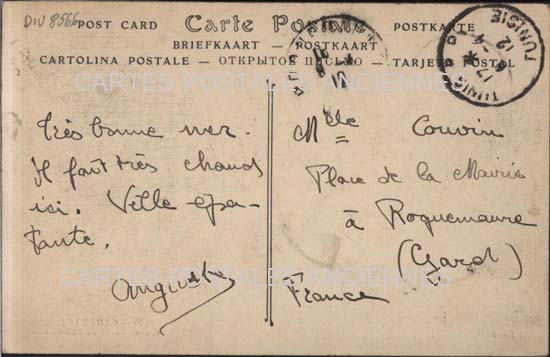 DIV 8566
POST CARD Carte Postale POSTKARTE
BRIEFKAART — POSTKAART
CARTOLINA POSTALE — ОТКРЫТОЕ ПИСЬМО — TARJETA POSTAL
TUNIS R.P.
TUNISIE
17
12
CARTES POSTALES ANCIENNES
Très bonne mer.
Il fait très chaud
ici. Ville épa-
tante.
Auguste
Mlle Couvin
Place de la Mairie
à Roquemaure
(Gard)
France
CARTES POSTALES ANCIENNES